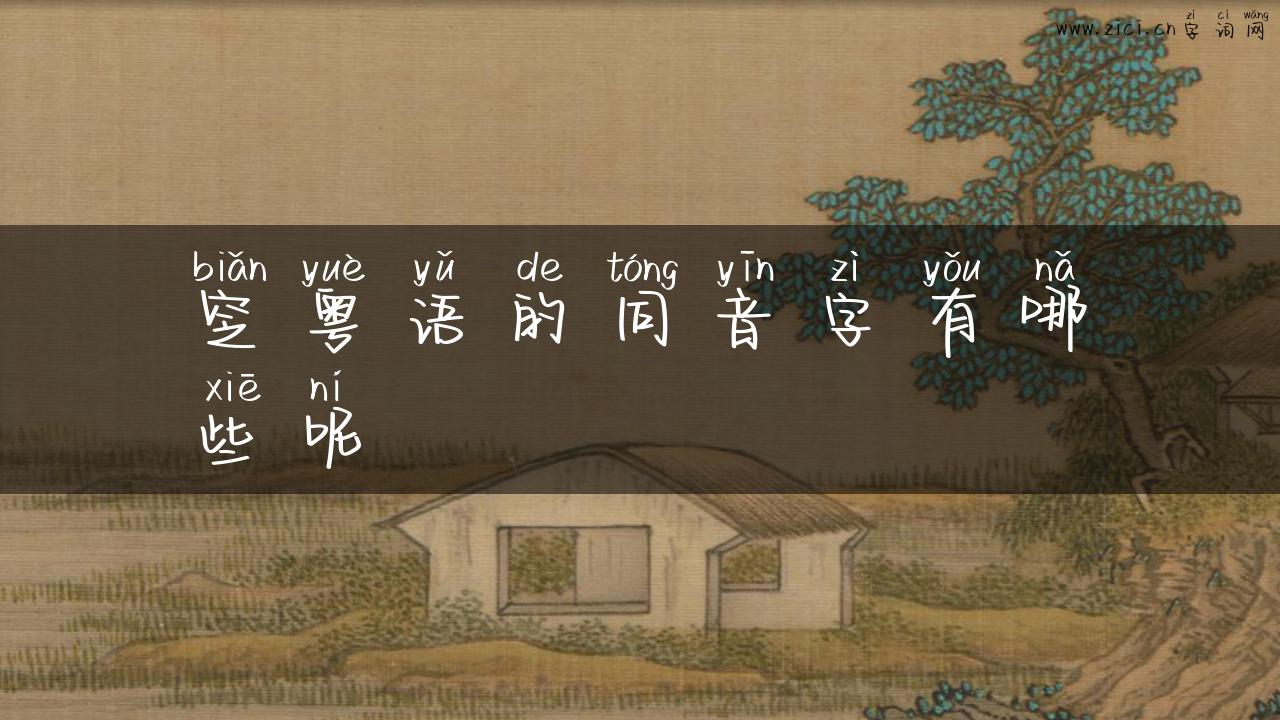 zì cí wǎng
www.zici.cn 字词网
biǎn yuè yǔ de tóng yīn zì yǒu nǎ
窆粤语的同音字有哪
xiē ní
些呢